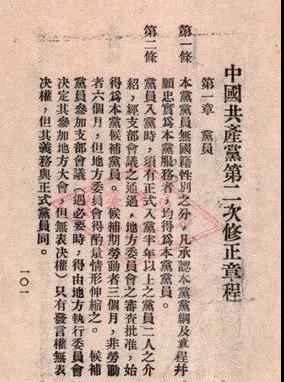 中國共產黨第二次修正章程
第一章　黨員
第一條　本黨黨員無國籍性別之分，凡承認本黨黨綱及章程幷
願忠實爲本黨服務者，均得爲本黨黨員。
第二條　黨員入黨時，須有正式入黨半年以上之黨員二人之介
紹，經支部會議之通過，地方委員會之審查批准，始
得爲本黨候補黨員。候補期勞動者三個月，非勞動
者六個月，但地方委員會得酌量情形伸縮之。候補
黨員參加支部會議（遇必要時，得由地方執行委員會
決定其參加地方大會，但無表決權）只有發言權無表
決權，但其義務與正式黨員同。
一〇一